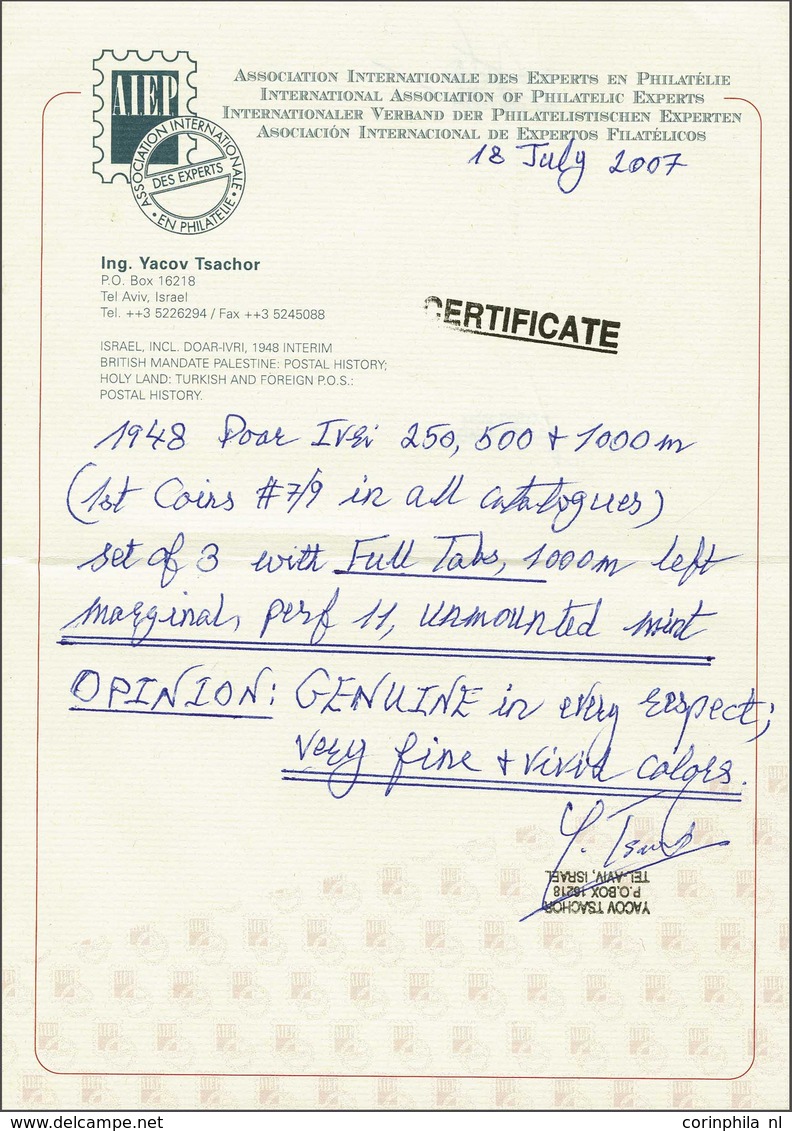 AIEP
ASSOCIATION INTERNATIONALE
DES EXPERTS
• EN PHILATÉLIE •
ASSOCIATION INTERNATIONALE DES EXPERTS EN PHILATÉLIE
INTERNATIONAL ASSOCIATION OF PHILATELIC EXPERTS
INTERNATIONALER VERBAND DER PHILATELISTISCHEN EXPERTEN
ASOCIACIÓN INTERNACIONAL DE EXPERTOS FILATÉLICOS
18 July 2007
Ing. Yacov Tsachor
P.O. Box 16218
Tel Aviv, Israel
Tel. ++3 5226294 / Fax ++3 5245088
CERTIFICATE
ISRAEL, INCL. DOAR-IVRI, 1948 INTERIM
BRITISH MANDATE PALESTINE: POSTAL HISTORY;
HOLY LAND: TURKISH AND FOREIGN P.O.S.:
POSTAL HISTORY.
1948 Doar Ivri 250, 500 + 1000m
(1st Coins #7/9 in all catalogues)
set of 3 with Full Tabs, 1000m left
marginal, perf 11, unmounted mint
OPINION: GENUINE in every respect;
very fine + vivid colors.
Y. Tsachor
YACOV TSACHOR
P.O.BOX 16218
TEL-AVIV, ISRAEL
www.delcampe.net
corinphila nl